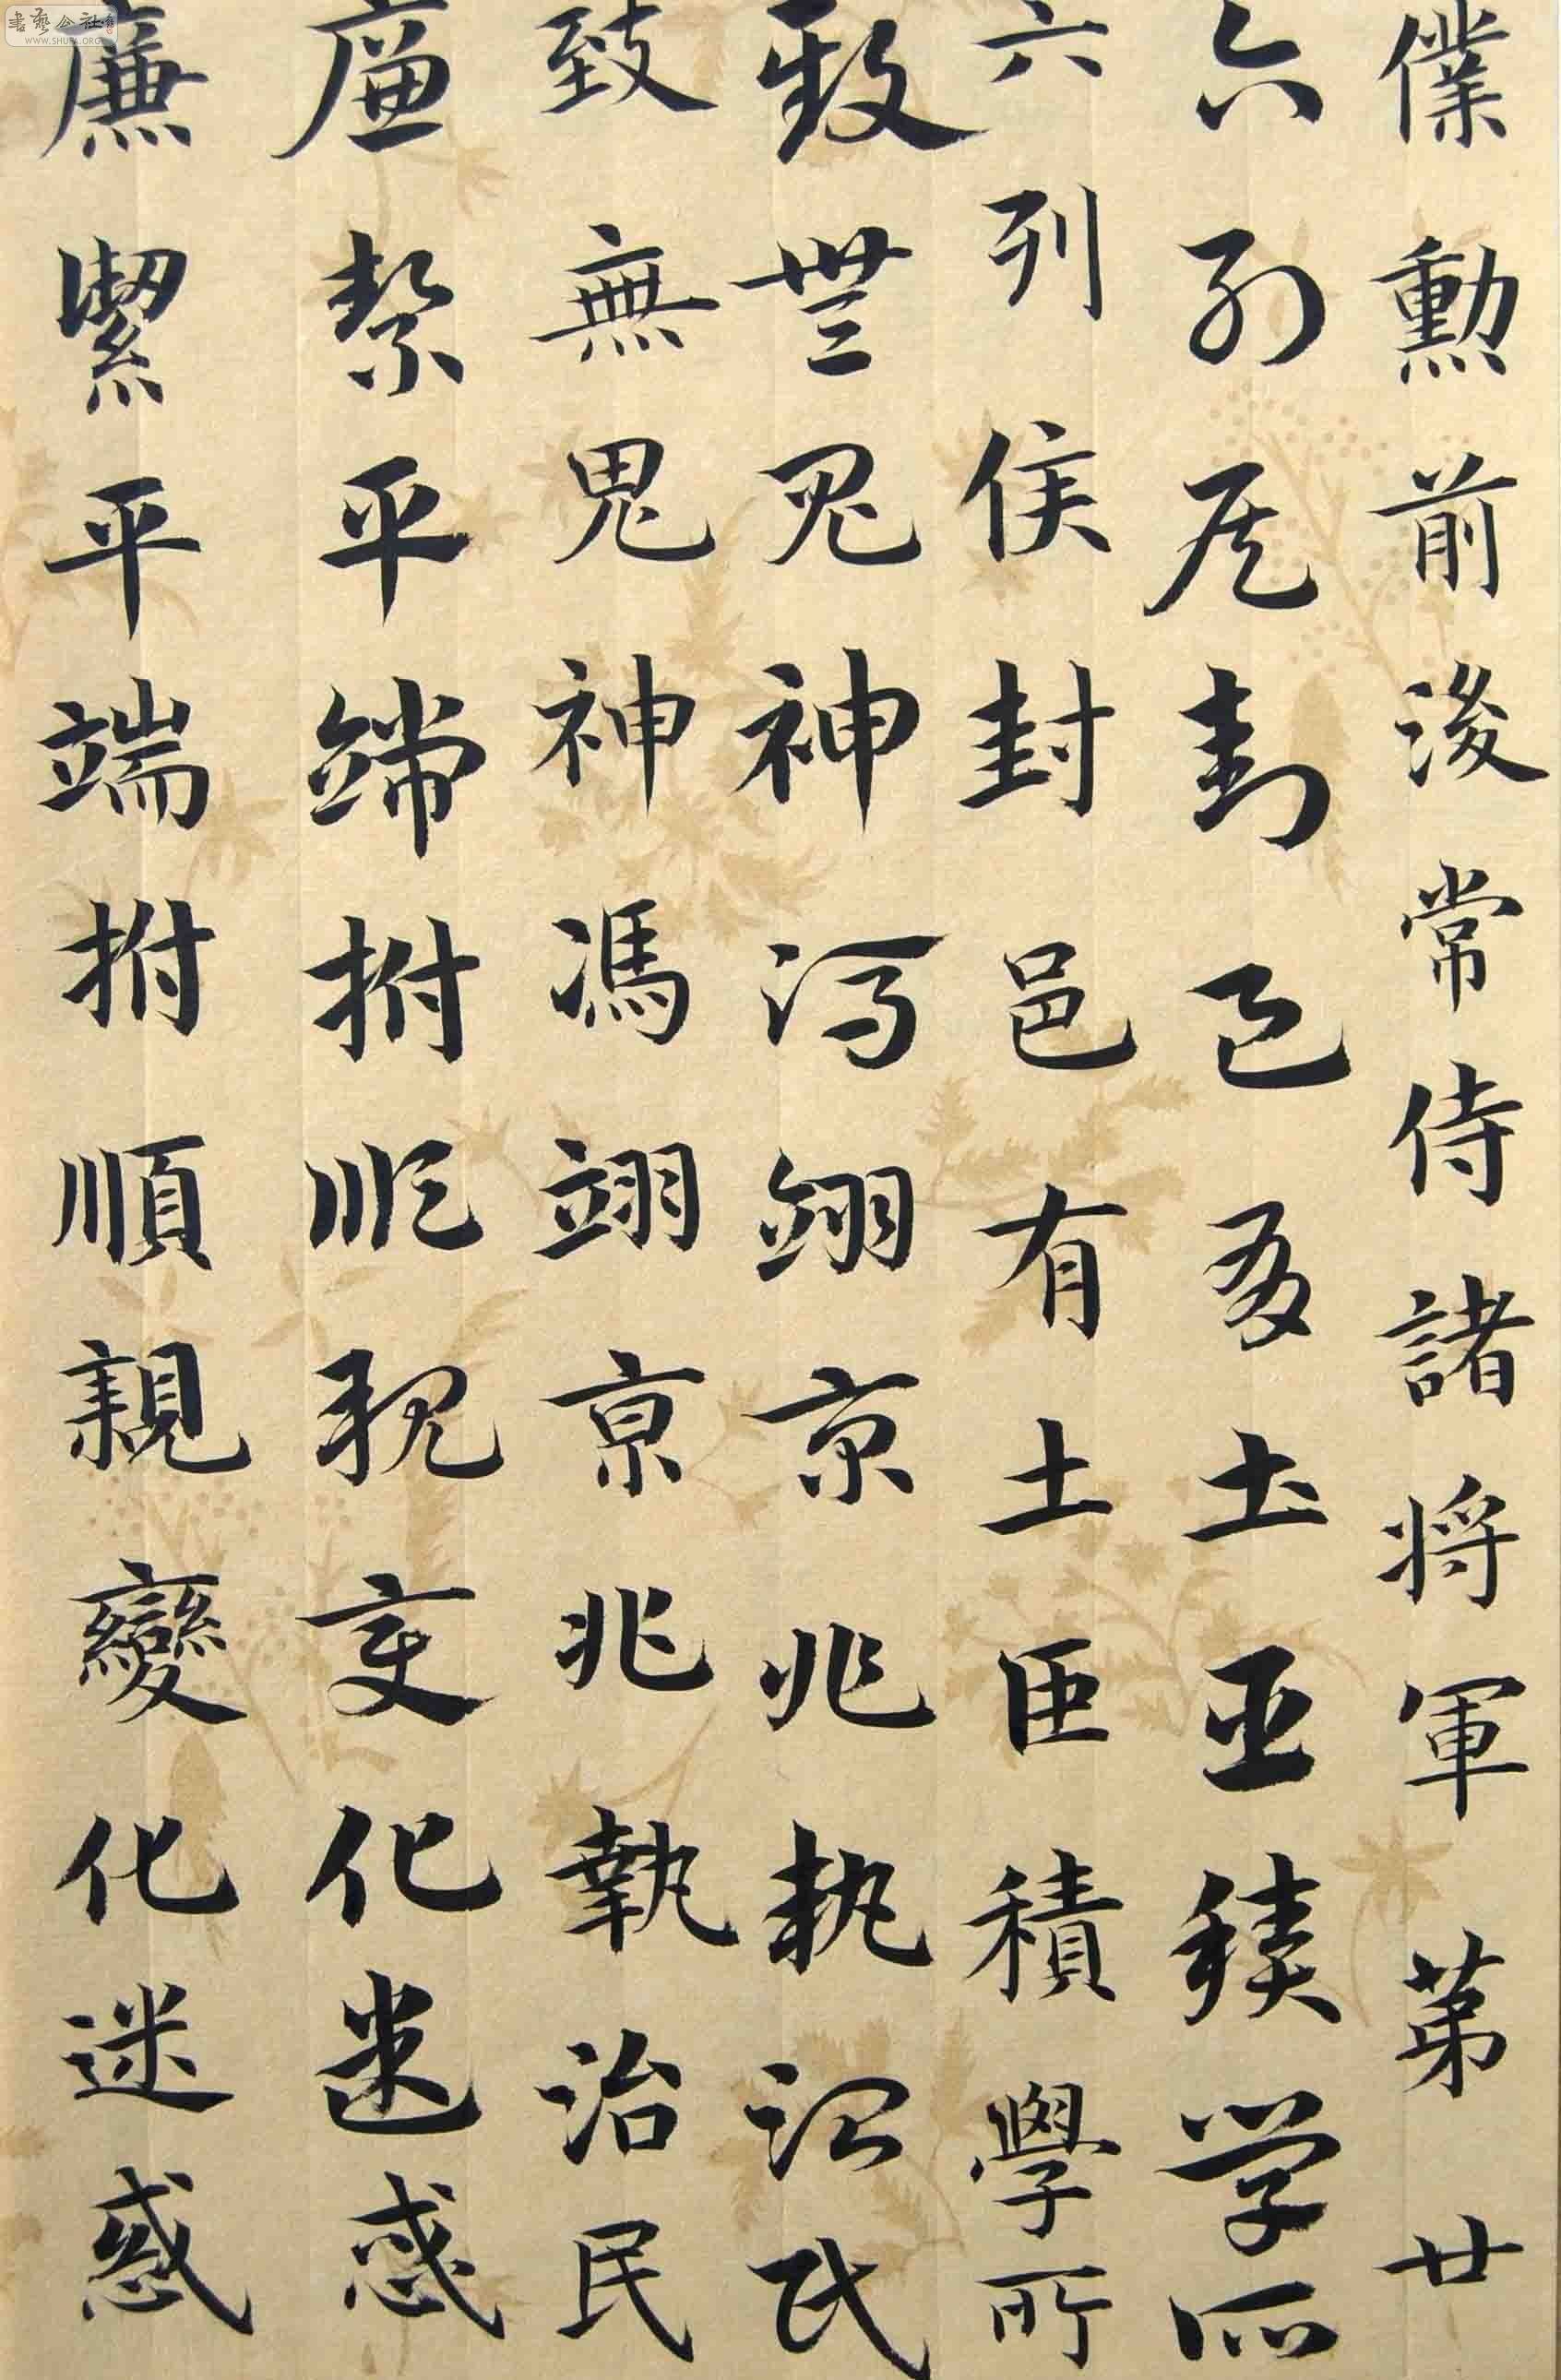 僕勳前後常侍諸將軍第廿
六列侯封邑有土臣積學所
六列侯封邑有土臣積學所
致無鬼神馮翊京兆執治民
致無鬼神馮翊京兆執治民
廉絜平端拊順親變化迷惑
廉潔平端拊順親變化迷惑
WWW.SHUFA.ORG